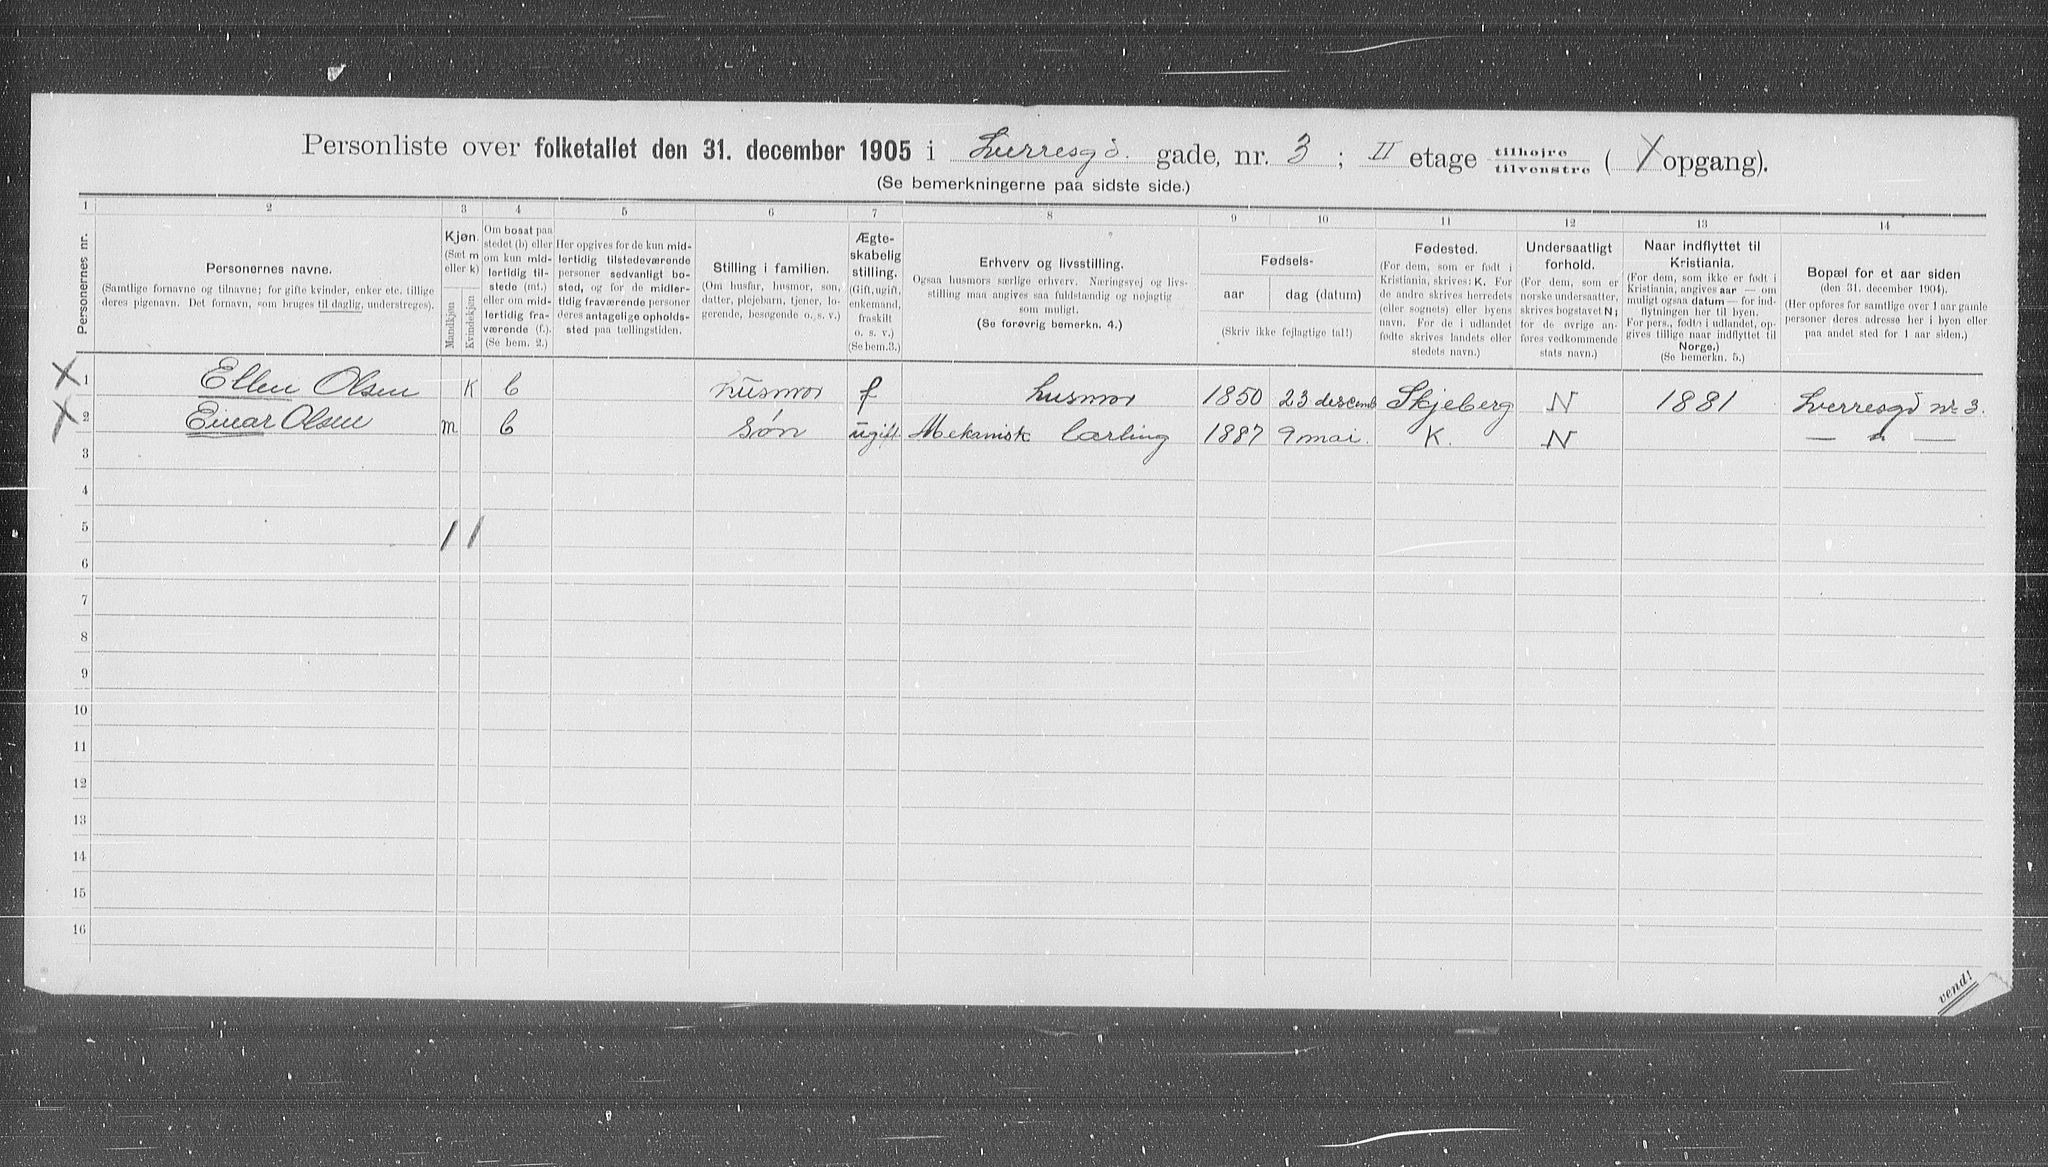 Personliste over folketallet den 31. december 1905 i Sverresgd. gade, nr. 3 ; II etage tilhøjre tilvenstre ( X opgang).
(Se bemerkningerne paa sidste side.)
1 2 3 4 5 6 7 8 9 10 11 12 13 14
Personernes nr.
Personernes navne.
(Samtlige fornavne og tilnavne; for gifte kvinder, enker etc. tillige
deres pigenavn. Det fornavn, som bruges til daglig, understreges).
Kjøn.
(Sæt m
eller k)
Mandkjøn
Kvindekjøn
Om bosat paa
stedet (b) eller
om kun mid-
lertidig til-
stede (mt.)
eller om mid-
lertidig fra-
værende (f.).
(Se bem. 2.)
Her opgives for de kun mid-
lertidig tilstedeværende
personer sedvanligt bo-
sted, og for de midler-
tidig fraværende personer
deres antagelige opholds-
sted paa tællingstiden.
Stilling i familien.
(Om husfar, husmor, søn,
datter, plejebarn, tjener, lo-
gerende, besøgende o. s. v.)
Ægte-
skabelig
stilling.
(Gift, ugift,
enkemand,
fraskilt
o. s. v.)
(Se bem.3.)
Erhverv og livsstilling.
Ogsaa husmors særlige erhverv. Næringsvej og livs-
stilling maa angives saa fuldstændig og nøjagtig
som muligt.
(Se forøvrig bemerkn. 4.)
Fødsels-
aar
dag (datum)
(Skriv ikke fejlagtige tal!)
Fødested.
(For dem, som er født i
Kristiania, skrives: K. For
de andre skrives herredets
(eller sognets) eller byens
navn. For de i udlandet
fødte skrives landets eller
stedets navn.)
Undersaatligt
forhold.
(For dem, som er
norske undersaatter,
skrives bogstavet N;
for de øvrige an-
føres vedkommende
stats navn.)
Naar indflyttet til
Kristiania.
(For dem, som ikke er født i
Kristiania, angives aar — om
muligt ogsaa datum — for ind-
flytningen her til byen.
For pers., født i udlandet, op-
gives tillige naar indflyttet til
Norge.)
(Se bemerkn. 5.)
Bopæl for et aar siden
(den 31. december 1904).
(Her opføres for samtlige over 1 aar gamle
personer deres adresse her i byen eller
paa andet sted for 1 aar siden.)
X 1 Ellen Olsen K b husmor f husmor 1850 23 descemb Skjeberg N 1881 Sverresgd nr. 3.
X 2 Einar Olsen m b søn ugift Mekanisk Lærling 1887 9 mai. K. N — " —
3
4
5 1 1
6
7
8
9
10
11
12
13
14
15
16
vend!